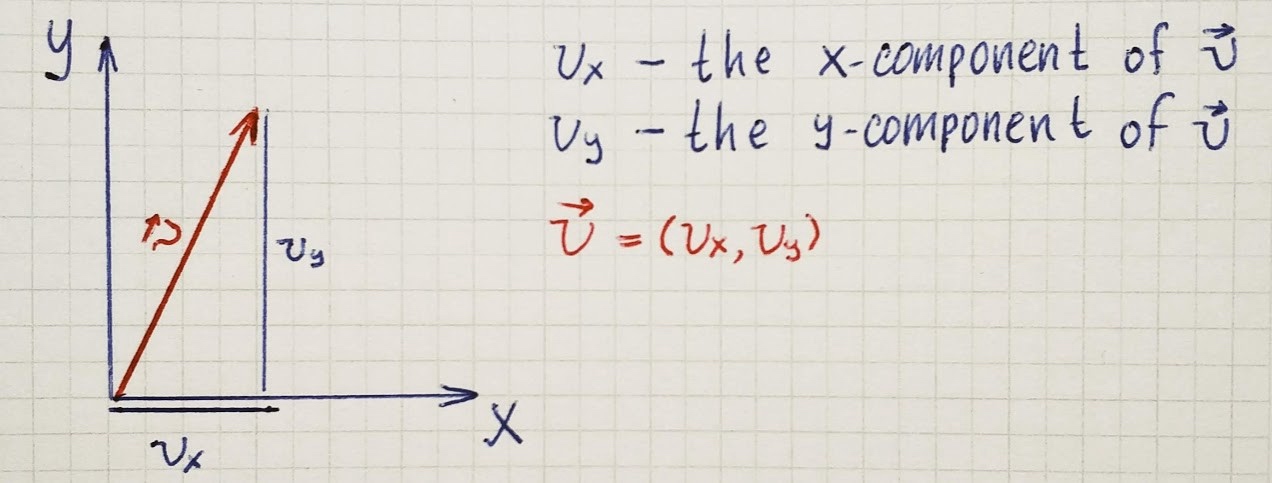 y
v⃗
v_y
v_x
X
v_x - the x-component of v⃗
v_y - the y-component of v⃗
v⃗ = (v_x, v_y)